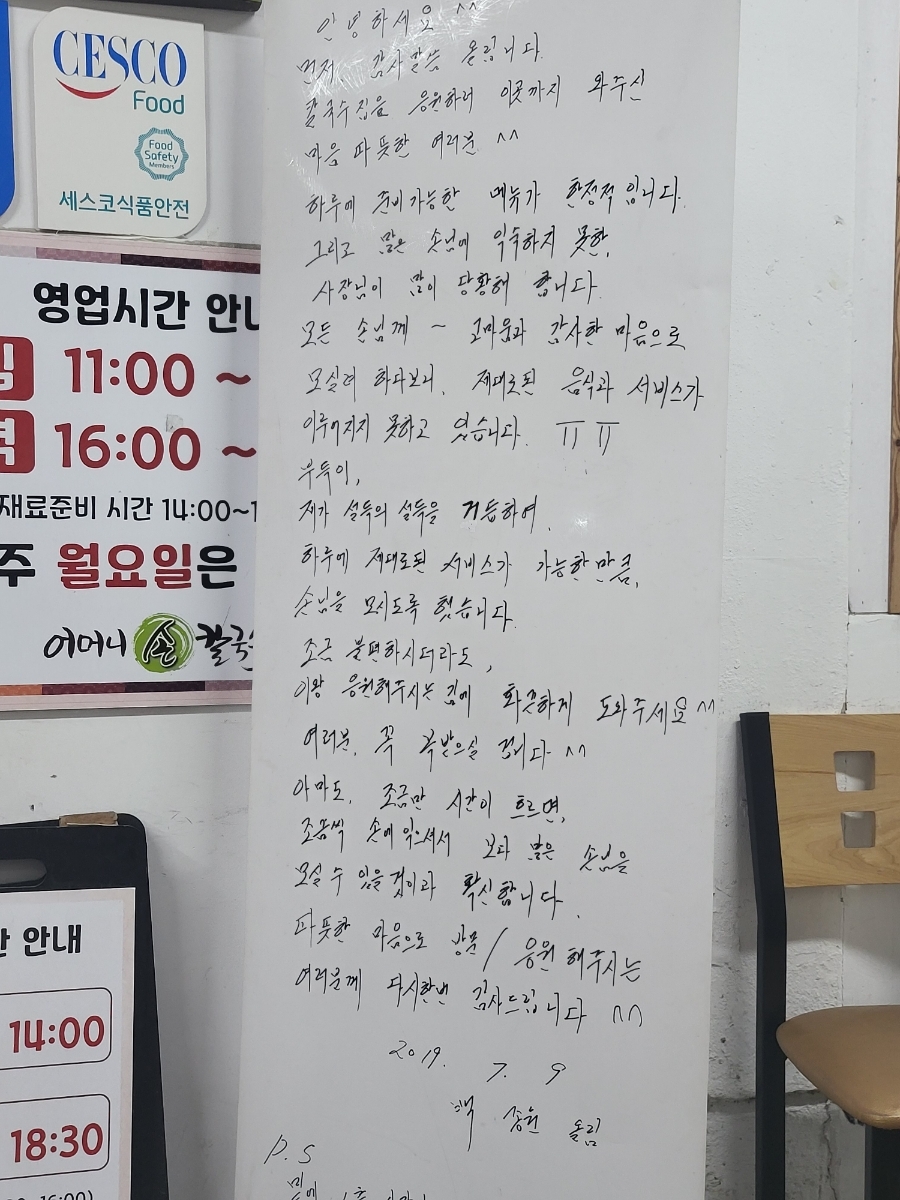 CESCO
Food
Food
Safety
Members
세스코식품안전
영업시간 안내
11:00 ~
16:00 ~
재료준비 시간 14:00~1
주 월요일은
어머니 손 칼국수
안내
14:00
18:30
16:00)
안녕하세요 ^^
먼저, 감사말씀 올립니다.
칼국수집을 응원하러 이곳까지 와주신
마음 따뜻한 여러분 ^^
하루에 준비가능한 메뉴가 한정적입니다.
그리고 많은 손님에 익숙하지 못한,
사장님이 많이 당황해 합니다.
모든 손님께 ~ 고마움과 감사한 마음으로
모실려 하다보니, 제대로된 음식과 서비스가
이루어지지 못하고 있습니다. ㅠㅠ
부득이,
제가 설득의 설득을 거듭하여,
하루에 제대로된 서비스가 가능한만큼,
손님을 모시도록 했습니다.
조금 불편하시더라도,
이왕 응원해주시는김에 화끈하게 도와주세요 ^^
여러분, 꼭 복받으실 겁니다 ^^
아마도, 조금만 시간이 흐르면,
조금씩 손에 익으셔서 보다 많은 손님을
모실 수 있을것이라 확신합니다.
따뜻한 마음으로 방문/응원 해주시는
여러분께 다시한번 감사드립니다 ^^
2019. 7. 9
백 종원 올림
P.S